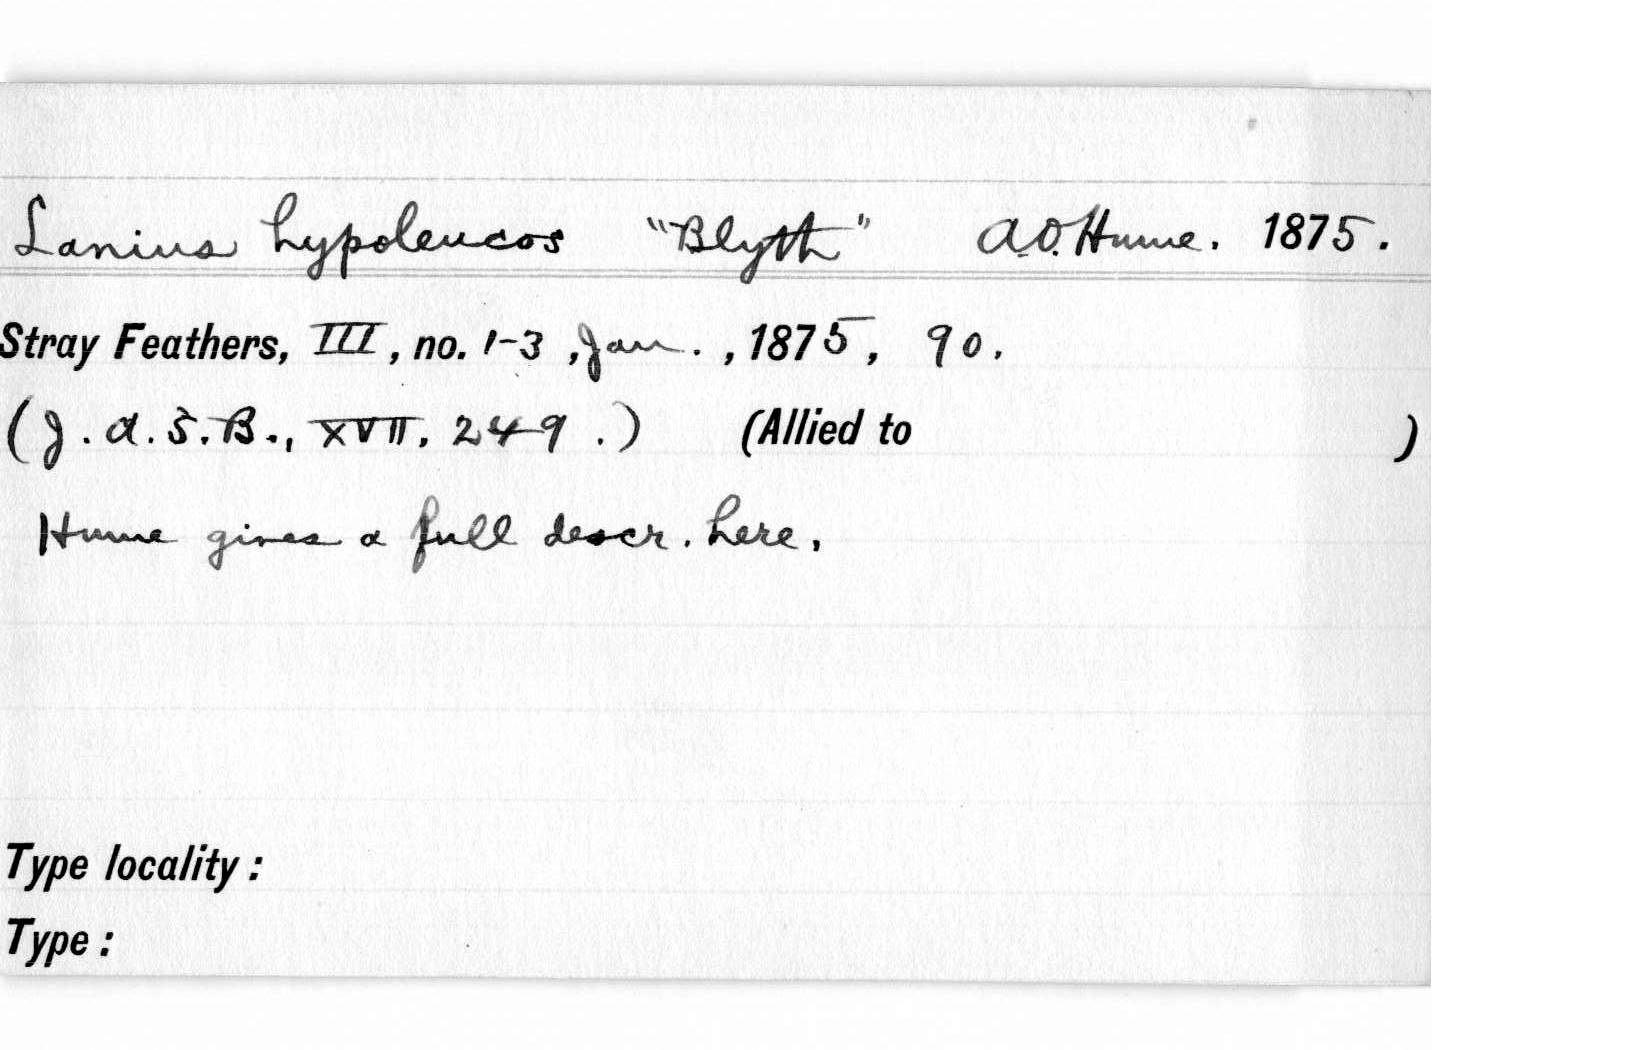 Lanius hypoleucos "Blyth" A.O. Hume. 1875.
Stray Feathers, III, no. 1-3, Jan., 1875, 90.
(J. A. S. B., XVII, 249.) (Allied to )
Hume gives a full descr. here.
Type locality:
Type: